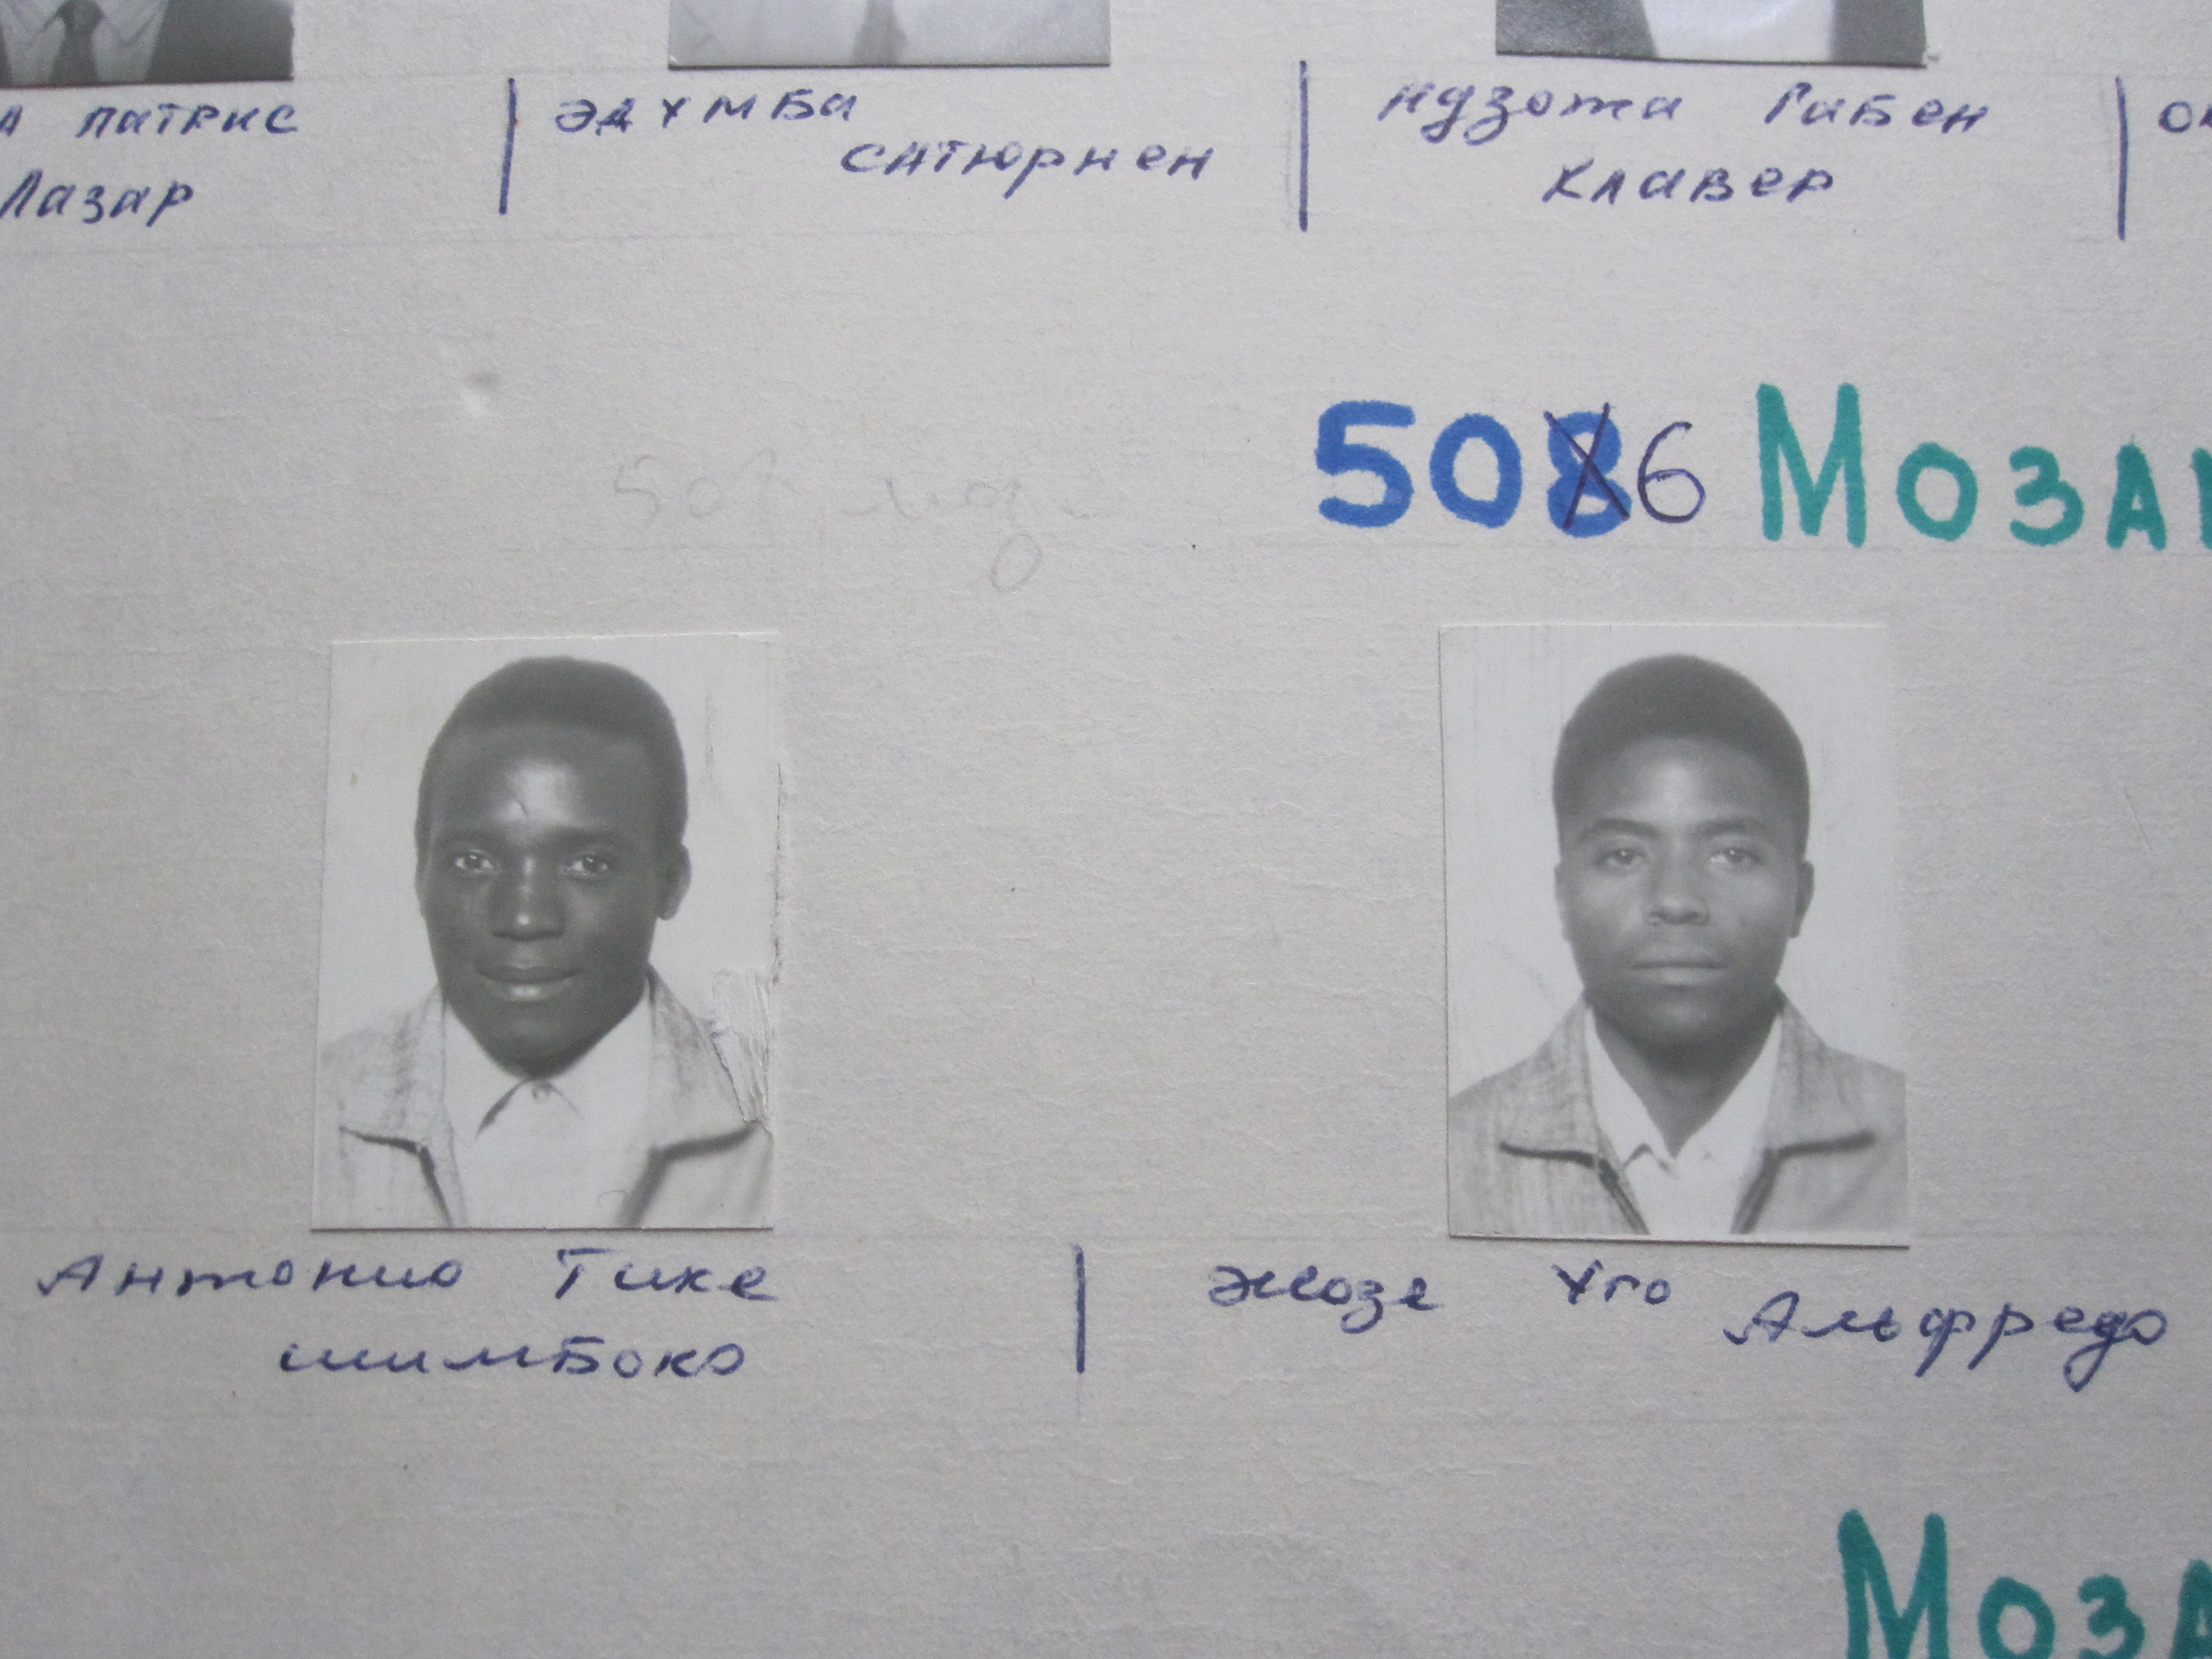 Патрис
Лазар
Эдумба
Сатюрнен
Ндзота Габен
Клавер
5086 Моза
Антонио Тике
Шимбоко
Жозе Уго Альфредо
Моза